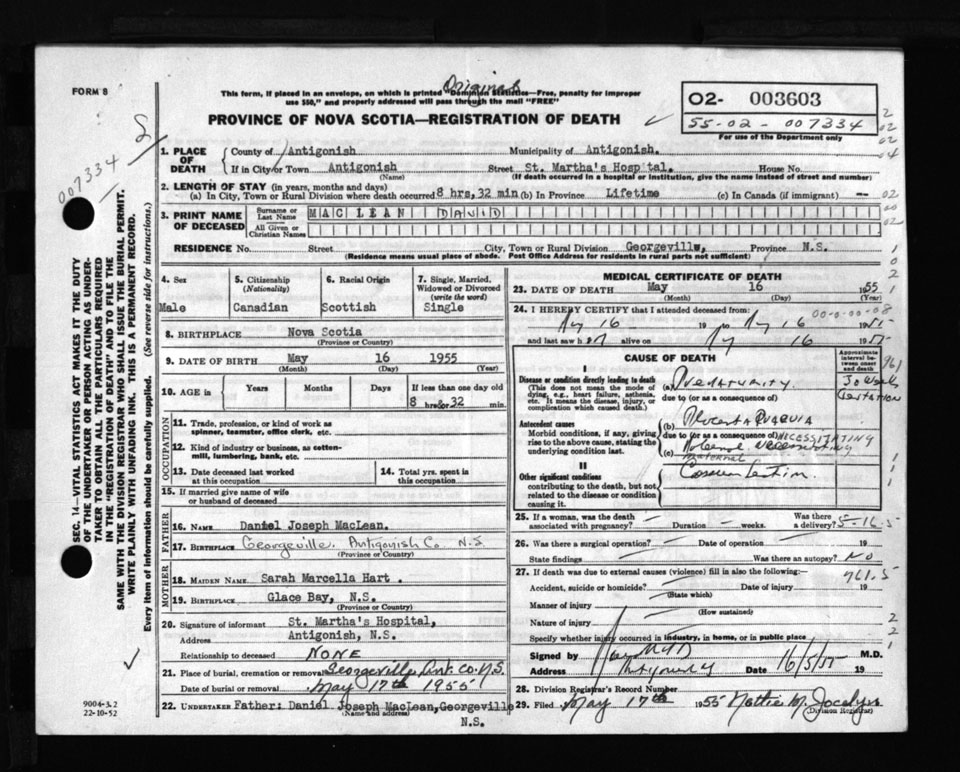 FORM 8
Original
This form, if placed in an envelope, on which is printed "Dominion Statistics—Free, penalty for improper
use $50," and properly addressed will pass through the mail "FREE"
PROVINCE OF NOVA SCOTIA—REGISTRATION OF DEATH
O2- 003603
55-02-007334
For use of the Department only
007334
SEC. 14—VITAL STATISTICS ACT MAKES IT THE DUTY
OF THE UNDERTAKER OR PERSON ACTING AS UNDER-
TAKER TO OBTAIN ALL THE PARTICULARS REQUIRED
IN THE "REGISTRATION OF DEATH" AND TO FILE THE
SAME WITH THE DIVISION REGISTRAR WHO SHALL ISSUE THE BURIAL PERMIT.
WRITE PLAINLY WITH UNFADING INK. THIS IS A PERMANENT RECORD.
Every item of information should be carefully supplied. (See reverse side for instructions.)
1. PLACE OF DEATH
County of Antigonish Municipality of Antigonish.
If in City or Town Antigonish Street St. Martha's Hospital. House No.
(Name) (If death occurred in a hospital or institution, give the name instead of street and number)
2. LENGTH OF STAY (in years, months and days)
(a) In City, Town or Rural Division where death occurred 8 hrs, 32 min (b) In Province Lifetime (c) In Canada (if immigrant) —
3. PRINT NAME OF DECEASED
Surname or Last Name MACLEAN DAVID
All Given or Christian Names
RESIDENCE No. Street City, Town or Rural Division Georgeville, Province N.S.
(Residence means usual place of abode. Post Office Address for residents in rural parts not sufficient)
4. Sex
Male
5. Citizenship
(Nationality)
Canadian
6. Racial Origin
Scottish
7. Single, Married,
Widowed or Divorced
(write the word)
Single
8. BIRTHPLACE Nova Scotia
(Province or Country)
9. DATE OF BIRTH May 16 1955
(Month) (Day) (Year)
10. AGE in
Years Months Days If less than one day old
8 hrs or 32 min.
OCCUPATION
11. Trade, profession, or kind of work as
spinner, teamster, office clerk, etc.
12. Kind of industry or business, as cotton-
mill, lumbering, bank, etc.
13. Date deceased last worked
at this occupation
14. Total yrs. spent in
this occupation
15. If married give name of wife
or husband of deceased
FATHER
16. NAME Daniel Joseph MacLean.
17. BIRTHPLACE Georgeville, Antigonish Co. N.S.
(Province or Country)
MOTHER
18. MAIDEN NAME Sarah Marcella Hart .
19. BIRTHPLACE Glace Bay, N.S.
(Province or Country)
20. Signature of informant St. Martha's Hospital,
Address Antigonish, N.S.
Relationship to deceased NONE
21. Place of burial, cremation or removal Georgeville Ant. Co. N.S.
Date of burial or removal May 17th 1955
22. UNDERTAKER Father: Daniel Joseph MacLean, Georgeville
(Name and address) N.S.
9004-3.2
22-10-52
MEDICAL CERTIFICATE OF DEATH
23. DATE OF DEATH May 16 1955
(Month) (Day) (Year)
24. I HEREBY CERTIFY that I attended deceased from:
May 16 19 to May 16 1955
and last saw h alive on May 16 1955
CAUSE OF DEATH
Approximate
interval be-
tween onset
and death
I
Disease or condition directly leading to death
(This does not mean the mode of
dying, e.g., heart failure, asthenia,
etc. It means the disease, injury, or
complication which caused death.)
(a) Prematurity
30 Weeks
Gestation
due to (or as a consequence of)
Antecedent causes
Morbid conditions, if any, giving
rise to the above cause, stating the
underlying condition last.
(b) Placenta Praevia
due to (or as a consequence of) NECESSITATING
(c) MATERNAL
II
Other significant conditions
contributing to the death, but not
related to the disease or condition
causing it.
Cesarean Section
25. If a woman, was the death
associated with pregnancy? — Duration — weeks. Was there
a delivery? 5-16-5
26. Was there a surgical operation? — Date of operation — 19
State findings — Was there an autopsy? NO
27. If death was due to external causes (violence) fill in also the following:—
761.5
Accident, suicide or homicide? Date of injury 19
(State which)
Manner of injury
(How sustained)
Nature of injury
Specify whether injury occurred in industry, in home, or in public place
Signed by M.D.
Address Antigonish Date 16/5/55 19
28. Division Registrar's Record Number
29. Filed May 17th 1955 Nettie M. Jocelyn
(Division Registrar)